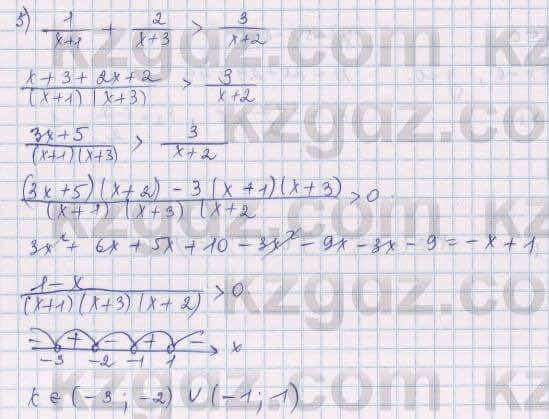 5) 1/(x+1) + 2/(x+3) > 3/(x+2)
(x+3+2x+2)/((x+1)(x+3)) > 3/(x+2)
(3x+5)/((x+1)(x+3)) > 3/(x+2)
((3x+5)(x+2) - 3(x+1)(x+3))/((x+1)(x+3)(x+2) > 0.
3x² + 6x + 5x + 10 - 3x² - 9x - 3x - 9 = -x + 1
(1-x)/((x+1)(x+3)(x+2)) > 0
- + - + -
-3 -2 -1 1 x
x ∈ (-3; -2) ∪ (-1; 1)
kzgdz.com
kzgdz.com
kzgdz.com
kzgdz.com